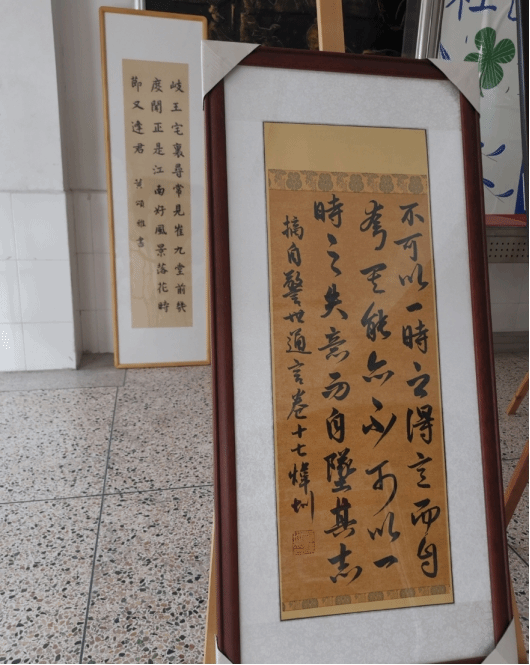 不可以一時之得意而自
夸其能亦不可以一
時之失意而自墜其志
摘自警世通言卷十七煒圳
岐王宅裏尋常見崔九堂前幾
度聞正是江南好風景落花時
節又逢君 頌雅書